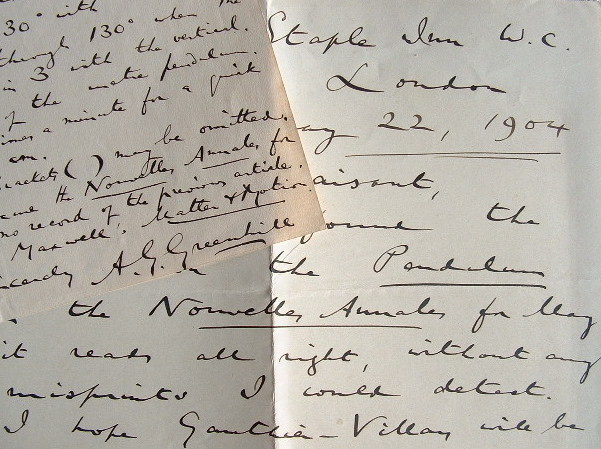 30° with
through 130° when the
in 3 with the vertical.
of the metre pendulum.
times a minute for a quick
brackets ( ) may be omitted.
the Nouvelles Annales for
no record of the previous article.
Maxwell, Matter & Motion
A.G. Greenhill
Staple Inn W.C.
London
22, 1904
found the
the Pendulum
the Nouvelles Annales for May
it reads all right, without any
misprints I could detect.
I hope Gauthier-Villars will be